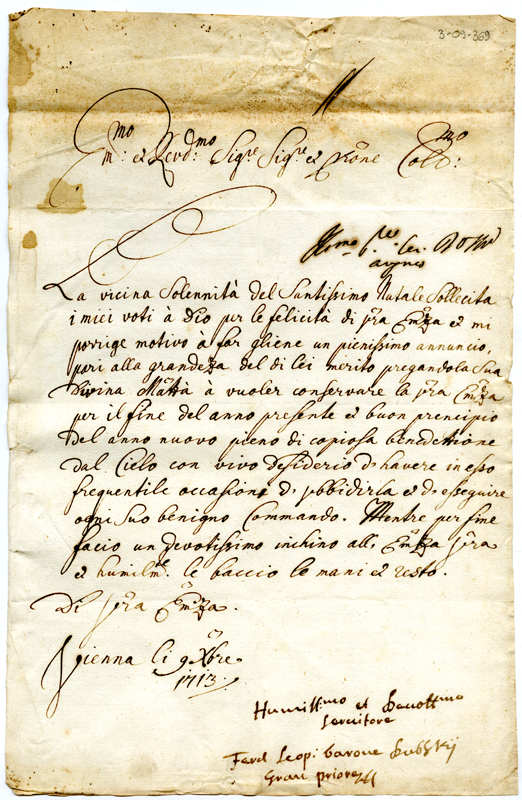 3-09-369
Em.mo et Revd.mo Sig.re Sig.re et Prone Col.mo
La vicina Solennità del Santissimo Natale Sollecita
i miei voti à Dio per le felicità di Vra Emza et mi
porrige motivo à far gliene un pienissimo annuncio,
pari alla grandezza del di lei merito pregandola Sua
Divina Mattà à vuoler conservare la Vra Emza
per il fine del anno presente et buon prencipio
del anno nuovo pieno di copiosa benedettione
dal Cielo con vivo desiderio d. havere in esso
frequentile occasione d. ubbidirla et d. esseguire
ogni Suo benigno Commando. Mentre per fine
facio un devotissimo inchino all. Emza Vra
et humilme. le baccio le mani et resto.
Di Vra Emza.
Vienna li 9 Xbre
1713.
Humilissimo et Devottmo
Servitore
Ferd Leop: barone
Gran priore